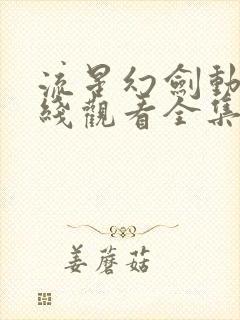 流星幻劍動
綫觀看全集
姜蘑菇